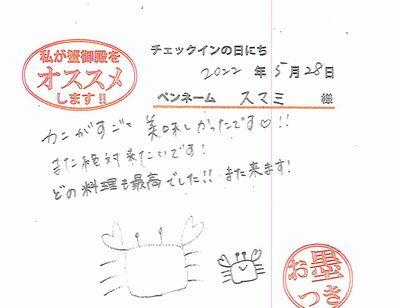 私が蟹御殿を
オススメ
します!!
チェックインの日にち
2022年5月28日
ペンネーム スマミ 様
カニがすごく美味しかったです♡!!
また絶対来たいです!
どの料理も最高でした!! また来ます!
お墨
つき